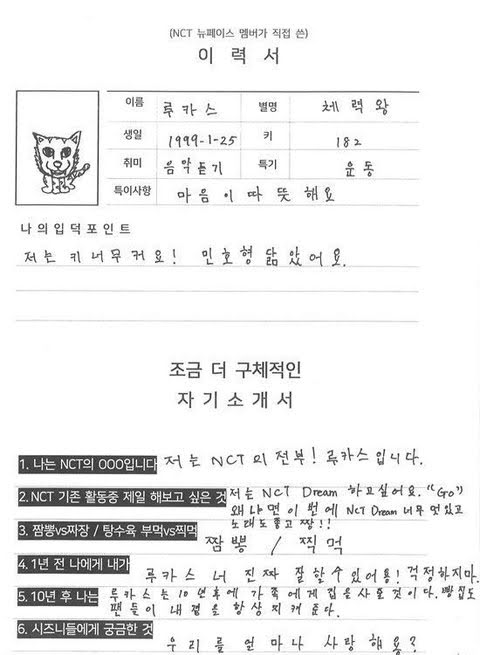 (NCT 뉴페이스 멤버가 직접 쓴)
이 력 서
이름 루카스 별명 체력왕
생일 1999-1-25 키 182
취미 음악듣기 특기 운동
특이사항 마음이따뜻해요
나의입덕포인트
저는 키너무커요! 민호형 닮았어요.
조금 더 구체적인
자기소개서
1. 나는 NCT의 OOO입니다 저는 NCT의 전부! 루카스입니다.
2. NCT 기존 활동중 제일 해보고 싶은 것 저는 NCT Dream 하고싶어요. "Go"
왜냐면 이번에 NCT Dream 너무 멋있고
노래도좋고 짱!!
3. 짬뽕vs짜장 / 탕수육 부먹vs찍먹 짬뽕 / 찍먹
4. 1년 전 나에게 내가 루카스 너 진짜 잘할수있어용! 걱정하지마.
5. 10년 후 나는 루카스는 10년후에 가족에게집을사로것이다. 빵집도
팬들이 내곁을항상지켜준다.
6. 시즈니들에게 궁금한 것 우리를얼마나 사랑해용?